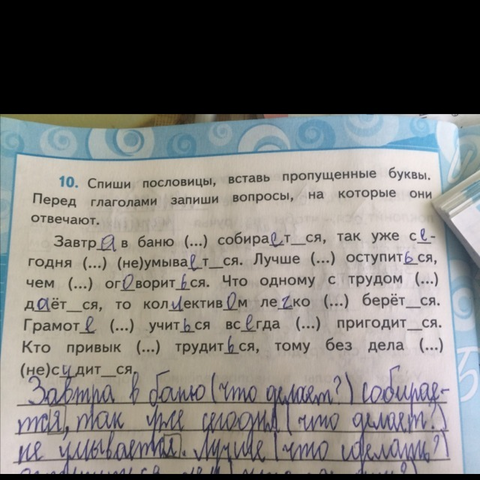 10. Спиши пословицы, вставь пропущенные буквы.
Перед глаголами запиши вопросы, на которые они
отвечают.
Завтра в баню (...) собирает_ся, так уже се-
годня (...) (не)умывает_ся. Лучше (...) оступиться,
чем (...) оговориться. Что одному с трудом (...)
даёт_ся, то коллективом легко (...) берёт_ся.
Грамоте (...) учиться всегда (...) пригодит_ся.
Кто привык (...) трудиться, тому без дела (...)
(не)сидит_ся.
Завтра в баню (что делает?) собирае-
тся, так уже сегодня (что делает?)
не умывается. Лучше (что сделать?)